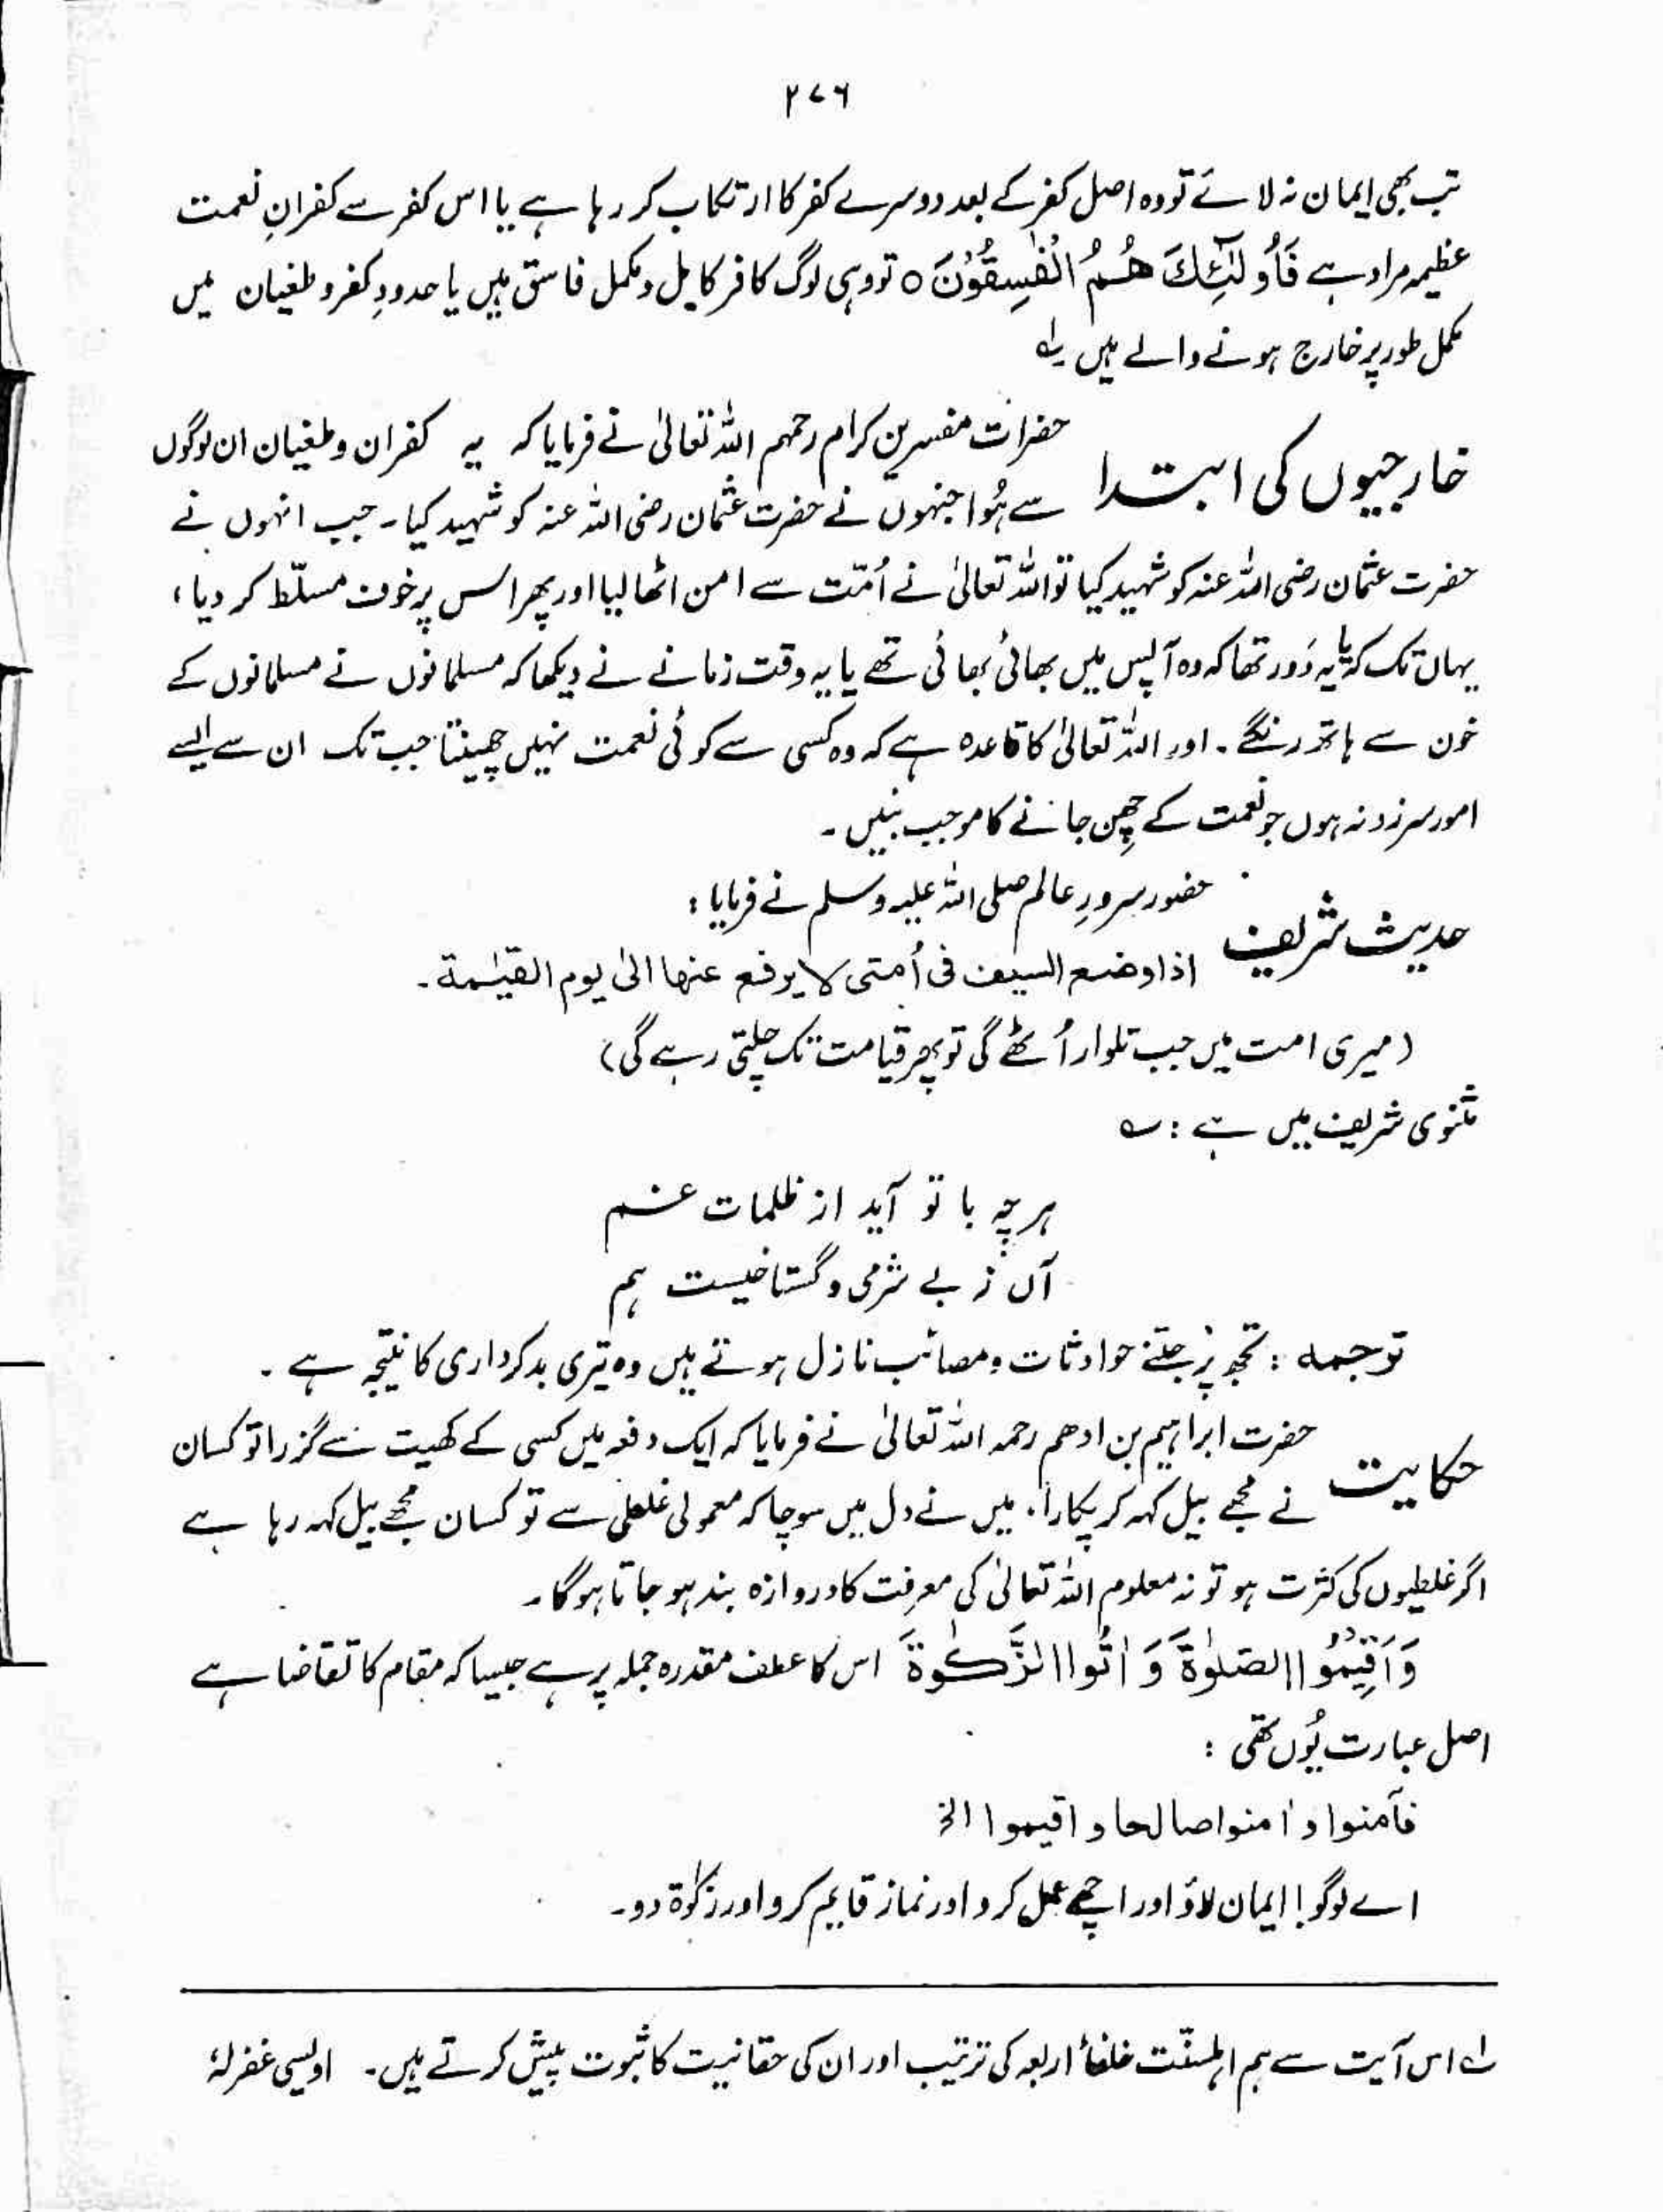 ۲۷۶
تب بھی ایمان نہ لائے تو وہ اصل کفر کے بعد دوسرے کفر کا ارتکاب کر رہا ہے یا اس کفر سے کفرانِ نعمت
عظیمہ مراد ہے فَاُولٰٓئِكَ هُمُ الْفٰسِقُوْنَ ○ تو وہی لوگ کافر کامل و مکمل فاسق ہیں یا حدودِ کفر و طغیان میں
مکمل طور پر خارج ہونے والے ہیں ۱؎
خارجیوں کی ابتدا
حضرات مفسرین کرام رحمہم اللہ تعالیٰ نے فرمایا کہ یہ کفران و طغیان ان لوگوں
سے ہُوا جنہوں نے حضرت عثمان رضی اللہ عنہ کو شہید کیا۔ جب انہوں نے
حضرت عثمان رضی اللہ عنہ کو شہید کیا تو اللہ تعالیٰ نے اُمّت سے امن اٹھا لیا اور پھر اس پر خوف مسلّط کر دیا،
یہاں تک کہ یا یہ دَور تھا کہ وہ آپس میں بھائی بھائی تھے یا یہ وقت زمانے نے دیکھا کہ مسلمانوں نے مسلمانوں کے
خون سے ہاتھ رنگے۔ اور اللہ تعالیٰ کا قاعدہ ہے کہ وہ کسی سے کوئی نعمت نہیں چھینتا جب تک ان سے ایسے
امور سرزد نہ ہوں جو نعمت کے چھِن جانے کا موجب بنیں۔
حدیث شریف
حضور سرورِ عالم صلی اللہ علیہ وسلم نے فرمایا:
اذا وضع السیف فی اُمتی لا یرفع عنھا الیٰ یوم القیٰمة۔
(میری امت میں جب تلوار اُٹھے گی تو پھر قیامت تک چلتی رہے گی)
مثنوی شریف میں ہے: ؎
ہر چہ با تو آید از ظلمات غم
آں ز بے شرمی و گستاخیست ہم
ترجمہ: تجھ پر جتنے حوادثات و مصائب نازل ہوتے ہیں وہ تیری بدکرداری کا نتیجہ ہے۔
حکایت
حضرت ابراہیم بن ادھم رحمہ اللہ تعالیٰ نے فرمایا کہ ایک دفعہ میں کسی کے کھیت سے گزرا تو کسان
نے مجھے بیل کہہ کر پکارا۔ میں نے دل میں سوچا کہ معمولی غلطی سے تو کسان مجھے بیل کہہ رہا ہے
اگر غلطیوں کی کثرت ہو تو نہ معلوم اللہ تعالیٰ کی معرفت کا دروازہ بند ہو جاتا ہوگا۔
وَاَقِيْمُوا الصَّلٰوةَ وَ اٰتُوا الزَّكٰوةَ اس کا عطف مقدرہ جملہ پر ہے جیسا کہ مقام کا تقاضا ہے
اصل عبارت یُوں تھی:
فآمنوا و اٰمنوا صالحا و اقیموا الخ
اے لوگو! ایمان لاؤ اور اچھے عمل کرو اور نماز قایم کرو اور زکوٰۃ دو۔
۱؎ اس آیت سے ہم اہلسنّت خلفأ اربعہ کی ترتیب اور ان کی حقانیت کا ثبوت پیش کرتے ہیں۔ اویسی غفرلہٗ